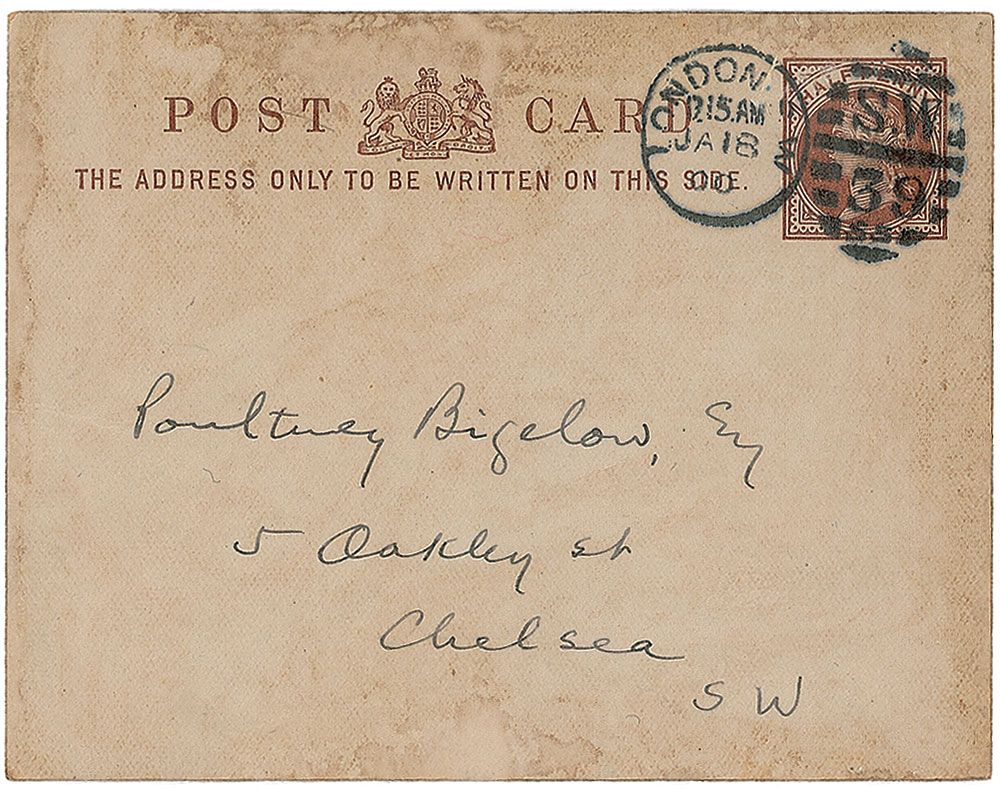 POST CARD
THE ADDRESS ONLY TO BE WRITTEN ON THIS SIDE.
LONDON. S.W
12.15.AM
JA 18
00
HALFPENNY
SW
39
Poultney Bigelow, Esq
5 Oakley St
Chelsea
S W